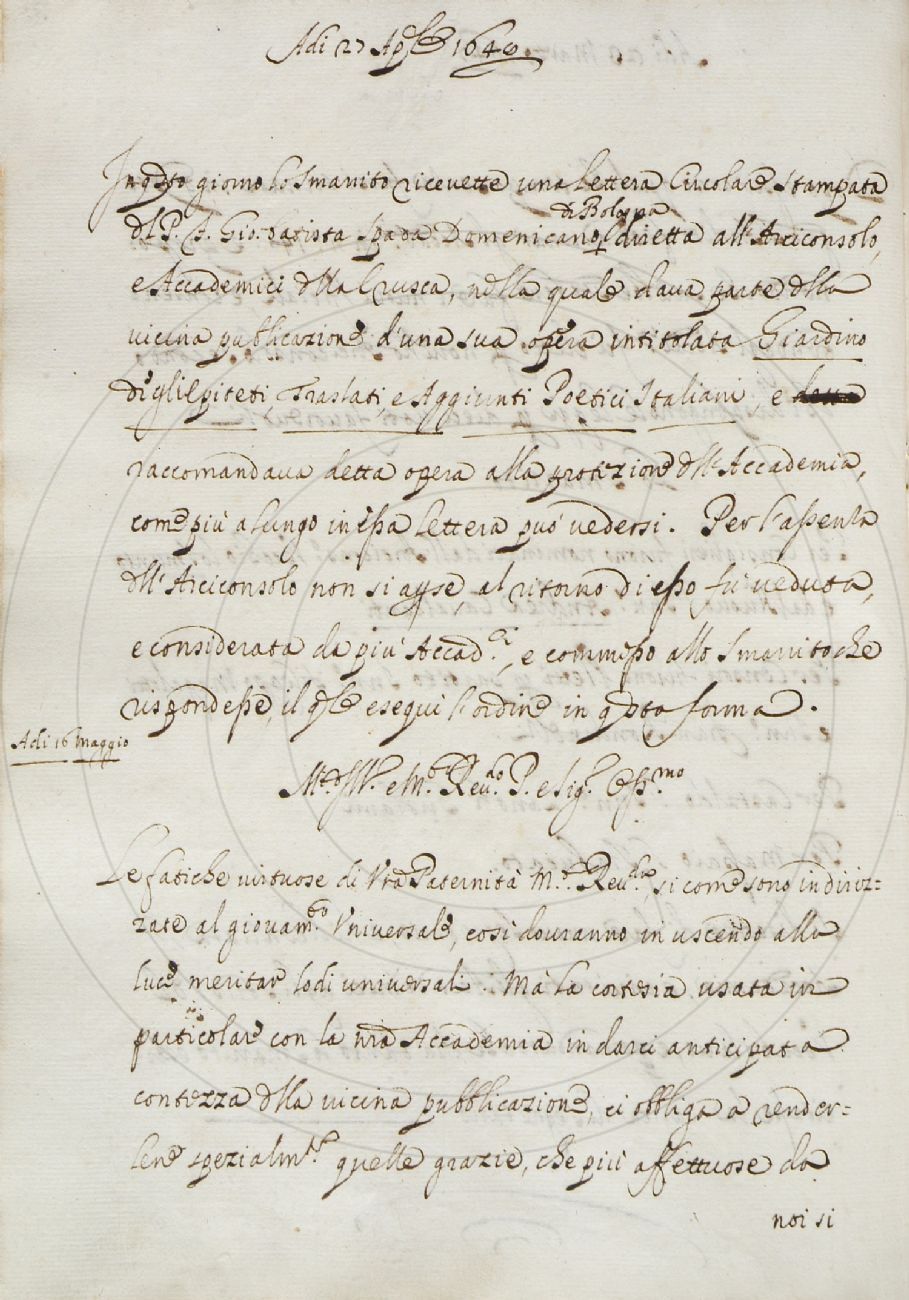 Adi 27 Aple 1648
In qsto giorno lo Smarrito ricevette una lettera Circolare stampata
dl P. F. Gio: Batista Spada Domenicano di Bologna diretta all'Arciconsolo,
e Accademici dlla Crusca, nella quale dava parte dlla
vicina pubblicazione d'una sua opera intitolata Giardino
degli Epiteti, Traslati, e Aggiunti Poetici Italiani, e detta
raccomandava detta opera alla protezione dll'Accademia,
come più a lungo in essa lettera può vedersi. Per l'assenza
dll'Arciconsolo non si aperse, al ritorno di esso fù veduta,
e considerata da più Accad.ci, e commesso allo Smarrito che
rispondesse, il qle eseguì l'ordine in qsta forma.
Adi 16 Maggio
M.to Ill.re e M.to Rev.do P. e Sig.r Oss.mo
Le fatiche virtuose di Vra Paternità M.to Rev.da, si come sono indiriz=
zate al giovam.to Universale, così dovranno in uscendo alla
luce meritar lodi universali. Mà la cortesia usata in
particolare con la nra Accademia in darci anticipata
contezza dlla vicina pubblicazione, ci obbliga a render=
lene spezialm.te quelle grazie, che più affettuose da
noi si